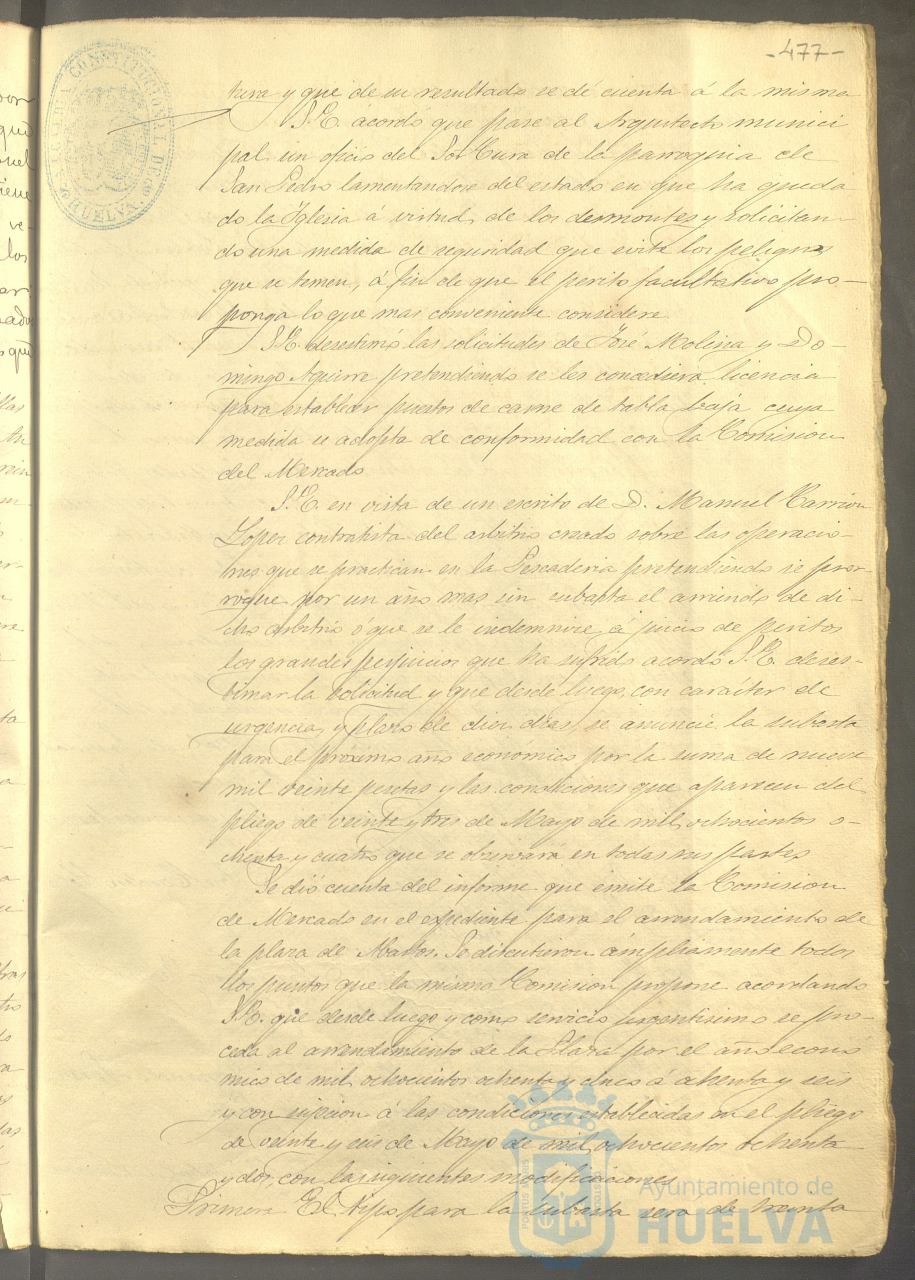 -477-
ALCALDIA CONSTITUCIONAL DE
HUELVA.
tura y que de su resultado se dé cuenta á la misma
S.E. acordó que pase al Arquitecto munici
pal un oficio del Sor Cura de la parroquia de
San Pedro lamentandose del estado en que ha queda
do la Iglesia á virtud de los desmontes y solicitan-
do una medida de seguridad que evite los peligros
que se temen, á fin de que el perito facultativo pro-
ponga lo que mas conveniente considere
S.E. desestimó las solicitudes de José Molina y Do-
mingo Aguirre pretendiendo se les concediera licencia
para establecer puestos de carne de tabla baja cuya
medida se adopta de conformidad con la Comision
del Mercado
S.E. en vista de un escrito de D. Manuel Carrion
Lopez contratista del arbitrio creado sobre las operacio-
nes que se practican en la Pescaderia pretendiendo se pror
rogue por un año mas sin subasta el arriendo de di-
cho arbitrio ó que se le indemnice, á juicio de peritos
los grandes perjuicios que ha sufrido acordó S.E. deses-
timar la solicitud y que desde luego, con carácter de
urgencia, y plazo de diez dias, se anuncie la subasta
para el próximo año economico por la suma de nueve
mil veinte pesetas y las condiciones que aparecen del
pliego de veinte y tres de Mayo de mil ochocientos o-
chenta y cuatro que se observará en todas sus partes
Se dió cuenta del informe que emite la Comision
de Mercado en el expediente para el arrendamiento de
la plaza de Abastos. Se discutieron ámpliamente todos
los puntos que la misma Comision propone acordando
S.E. que desde luego y como servicio urgentisimo se pro-
ceda al arrendamiento de la Plaza por el año econo
mico de mil ochocientos ochenta y cinco á ochenta y seis
y con sujecion á las condiciones establecidas en el pliego
de veinte y seis de Mayo de mil ochocientos ochenta
y dos, con las siguientes modificaciones
Primera El tipo para la subasta será de treinta
Ayuntamiento de
HUELVA